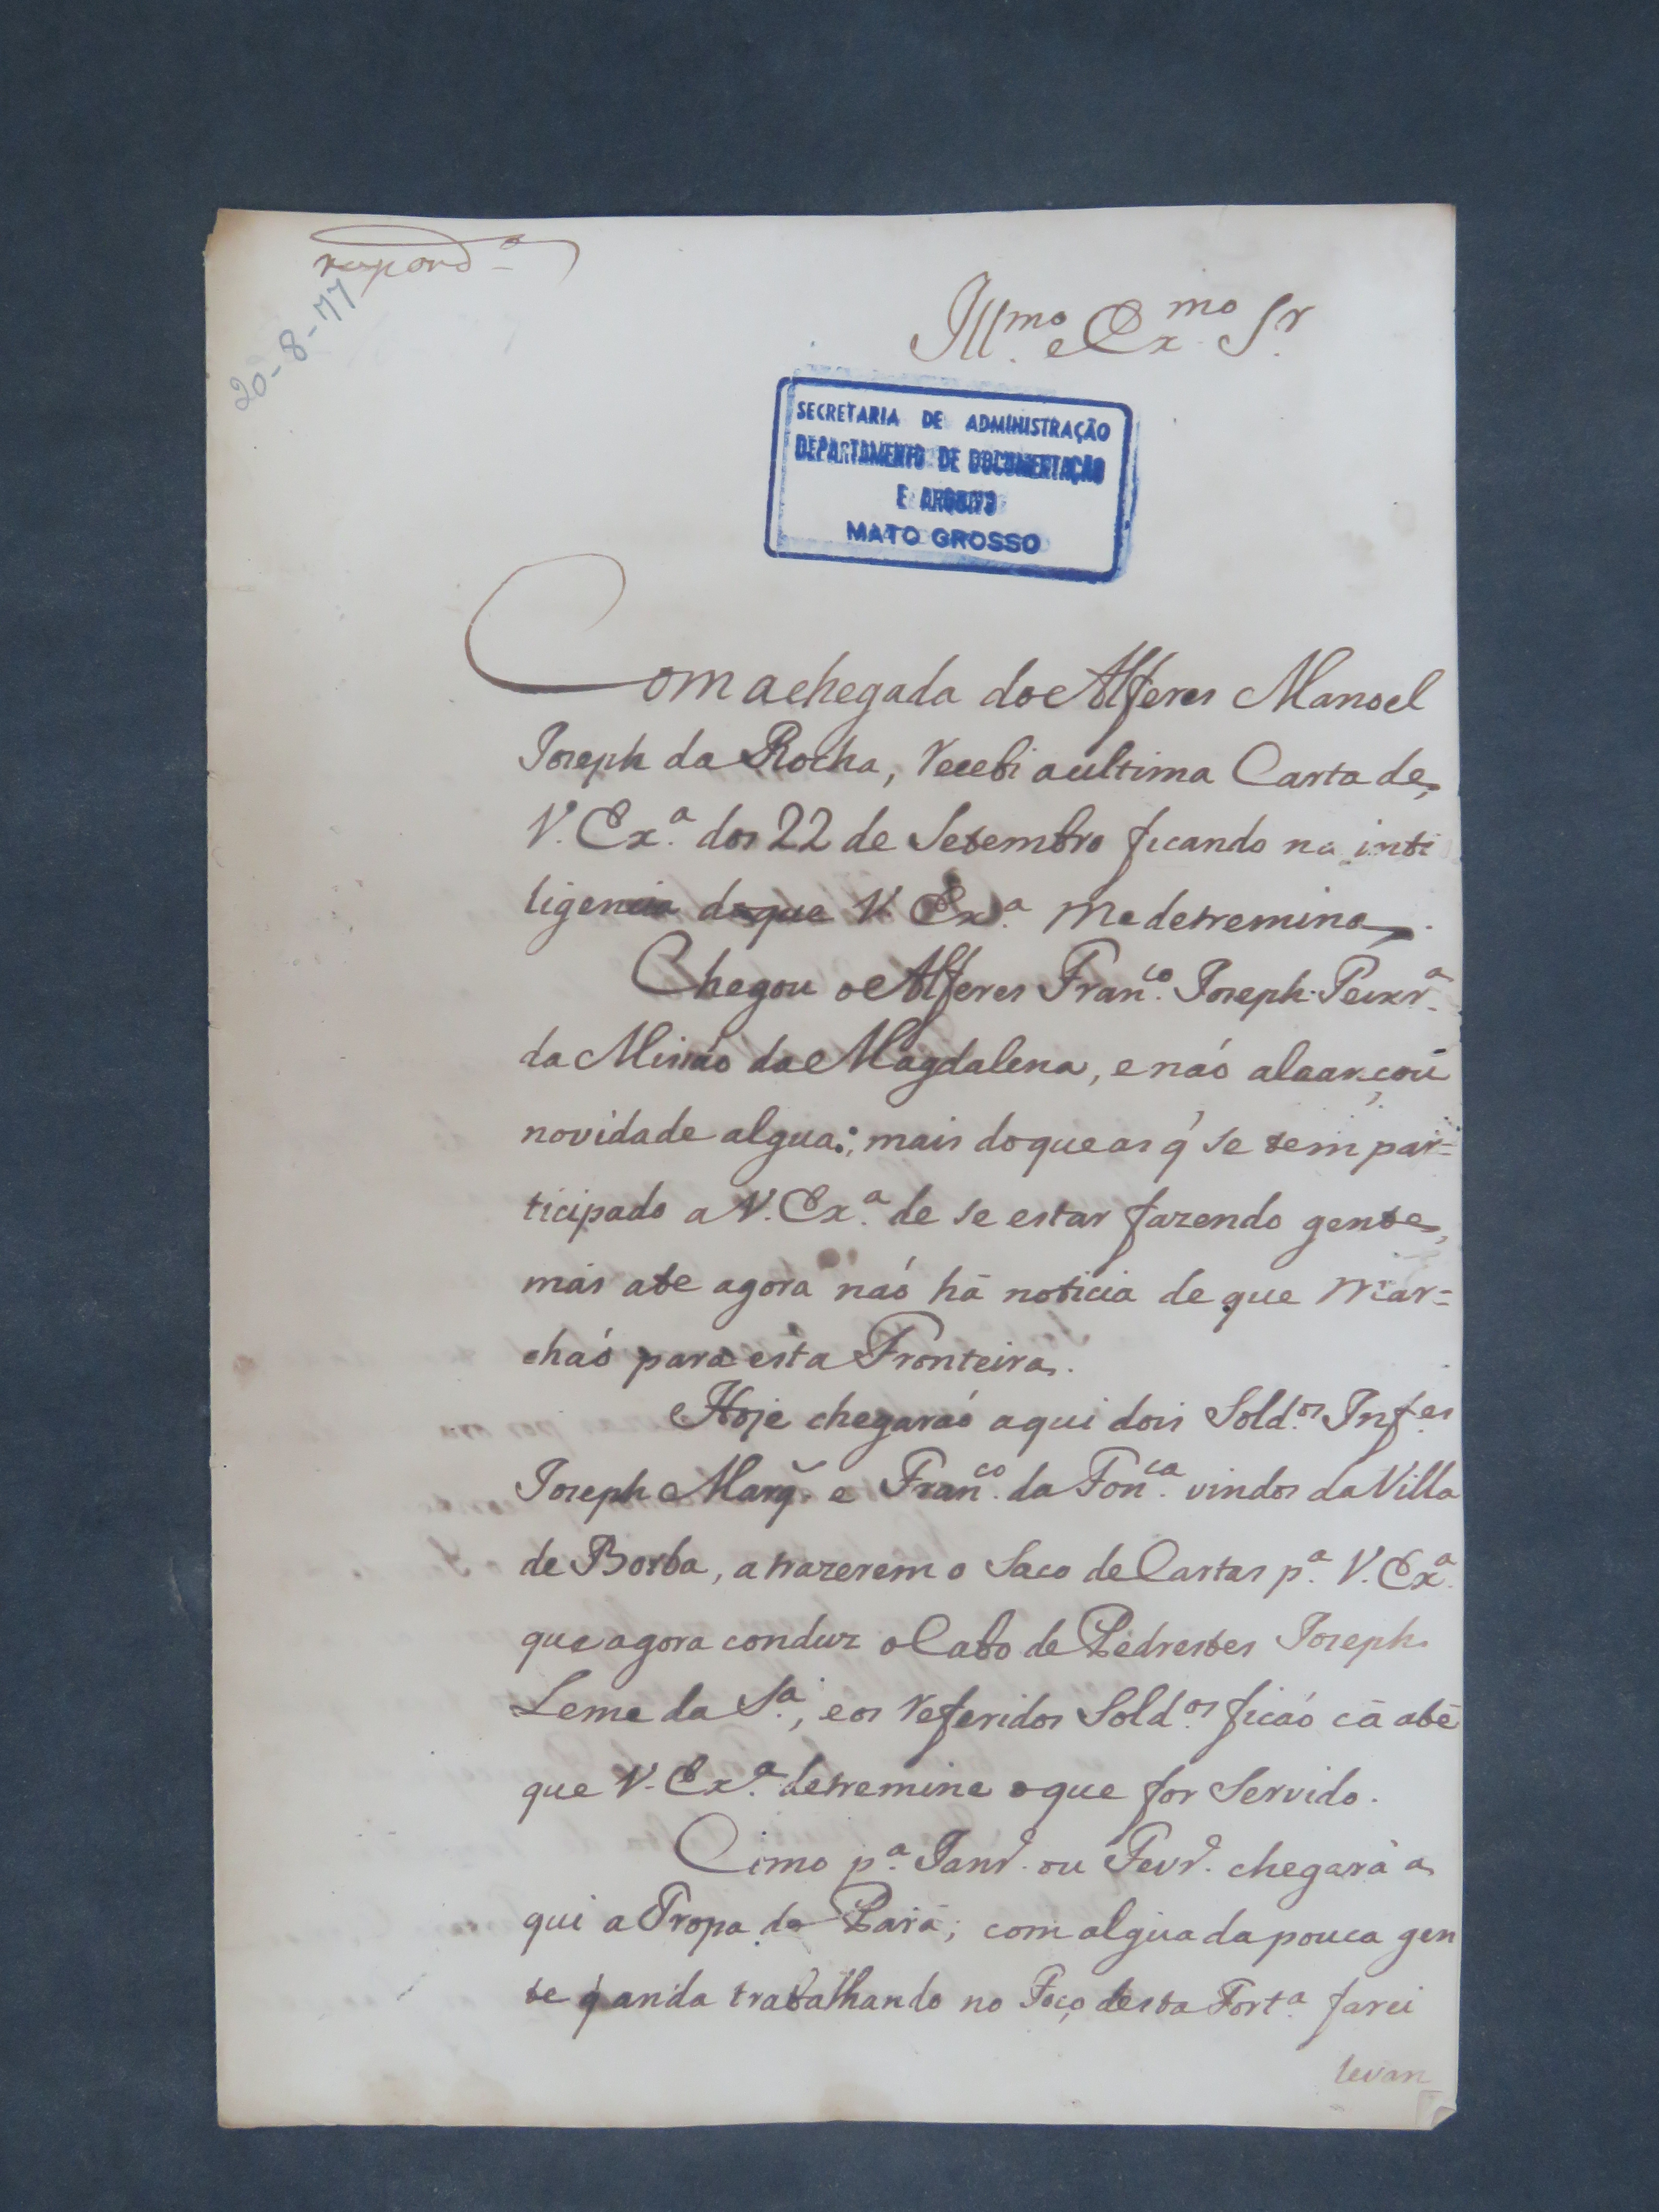 respond.ª
20-8-77
Ill.mo e Ex.mo S.r
SECRETARIA DE ADMINISTRAÇÃO
DEPARTAMENTO DE DOCUMENTAÇÃO
E ARQUIVO
MATO GROSSO
Com a chegada do Alferes Manoel
Joseph da Rocha, recebi a ultima Carta de
V. Ex.ª dos 22 de Setembro ficando na inte
ligencia do que V. Ex.ª me detremina.
Chegou o Alferes Fran.co Joseph Teixr.ª
da Missáo da Magdalena, e náo alcançou
novidade algua; mais do que as q' se tem par=
ticipado a V. Ex.ª de se estar fazendo gente,
mas ate agora náo há noticia de que mar=
cháo para esta Fronteira.
Hoje chegaráo aqui dois Sold.os Inf.es
Joseph Marq̃. e Fran.co da Fon.ca vindos da Villa
de Borba, a trazerem o Saco de Cartas p.ª V. Ex.ª
que agora conduz o Cabo de Pedrestes Joseph
Leme da S.ª, e os referidos Sold.os ficáo cá até
que V. Ex.ª detremine o que for Servido.
Como p.ª Janr.º ou Fevr.º chegará a
qui a Tropa do Pará; com algua da pouca gen
te q' anda trabalhando no Foço desta Fort.ª farei
levan